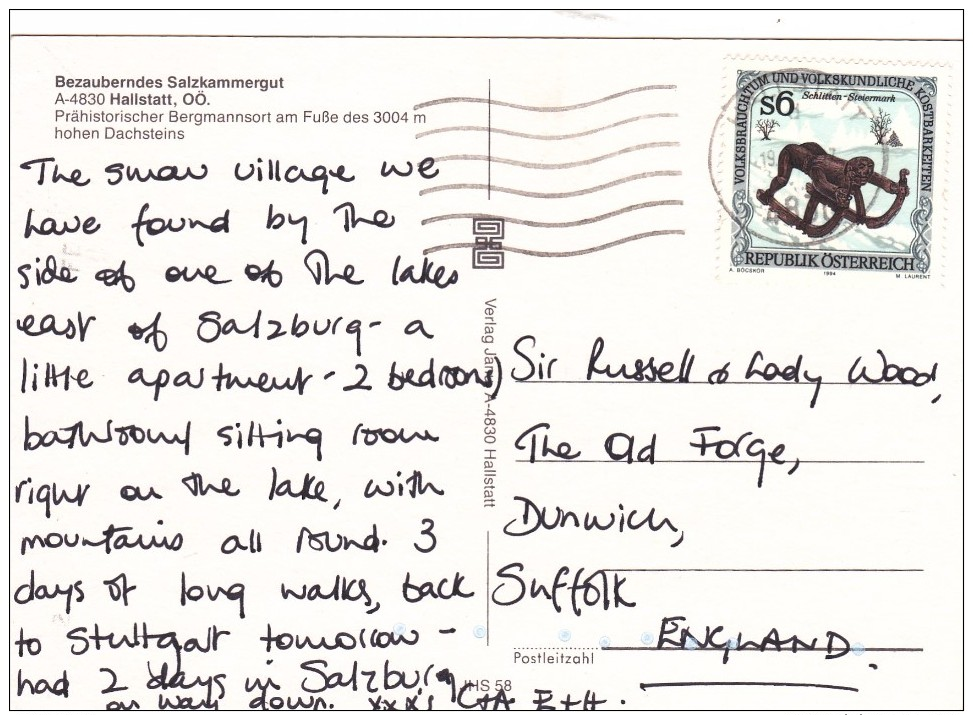 Bezauberndes Salzkammergut
A-4830 Hallstatt, OÖ.
Prähistorischer Bergmannsort am Fuße des 3004 m
hohen Dachsteins
The small village we
have found by the
side of one of the lakes
east of Salzburg - a
little apartment - 2 bedrooms,
bathroom, sitting room
right on the lake, with
mountains all round. 3
days of long walks, back
to Stuttgart tomorrow -
had 2 days in Salzburg
on way down. xxx's C+A E+H.
Verlag A-4830 Hallstatt
VOLKSBRAUCHTUM UND VOLKSKUNDLICHE KOSTBARKEITEN
S6
Schlitten-Steiermark
REPUBLIK ÖSTERREICH
A. BÖCSKÖR 1994 M. LAURENT
Sir Russell & Lady Wood,
The Old Forge,
Dunwich,
Suffolk
ENGLAND.
Postleitzahl
IHS 58